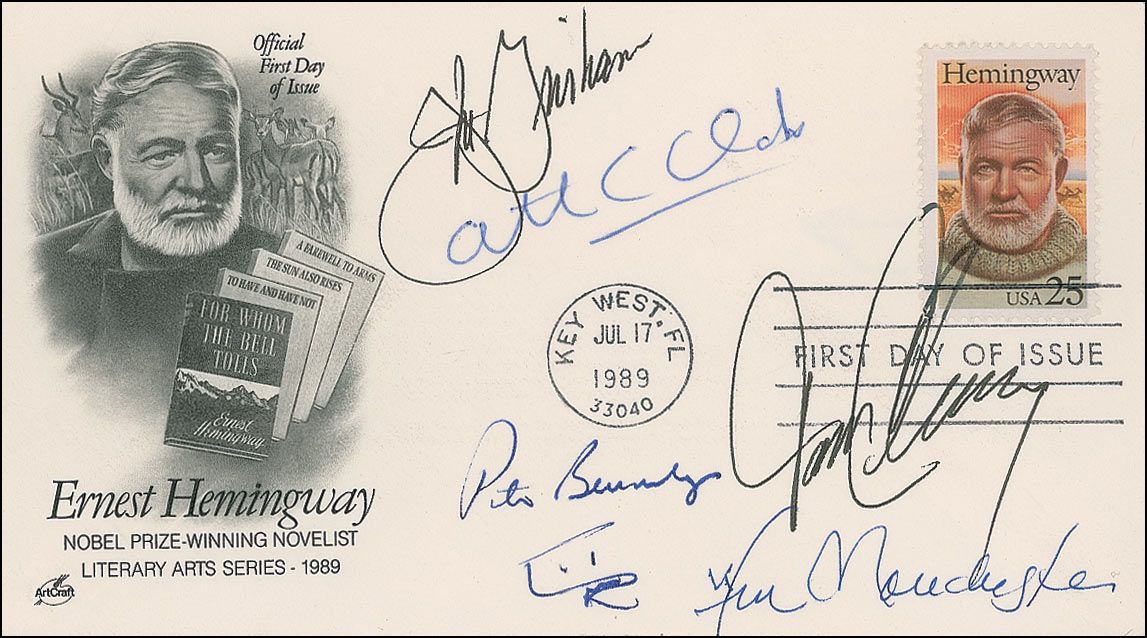 Official
First Day
of Issue
A FAREWELL TO ARMS
THE SUN ALSO RISES
TO HAVE AND HAVE NOT
FOR WHOM
THE BELL
TOLLS
Ernest
Hemingway
Ernest Hemingway
NOBEL PRIZE-WINNING NOVELIST
LITERARY ARTS SERIES - 1989
ArtCraft
John Grisham
Arthur C Clarke
KEY WEST, FL
JUL 17
1989
33040
Hemingway
USA 25
FIRST DAY OF ISSUE
Tom Clancy
Peter Benchley
Wm Manchester